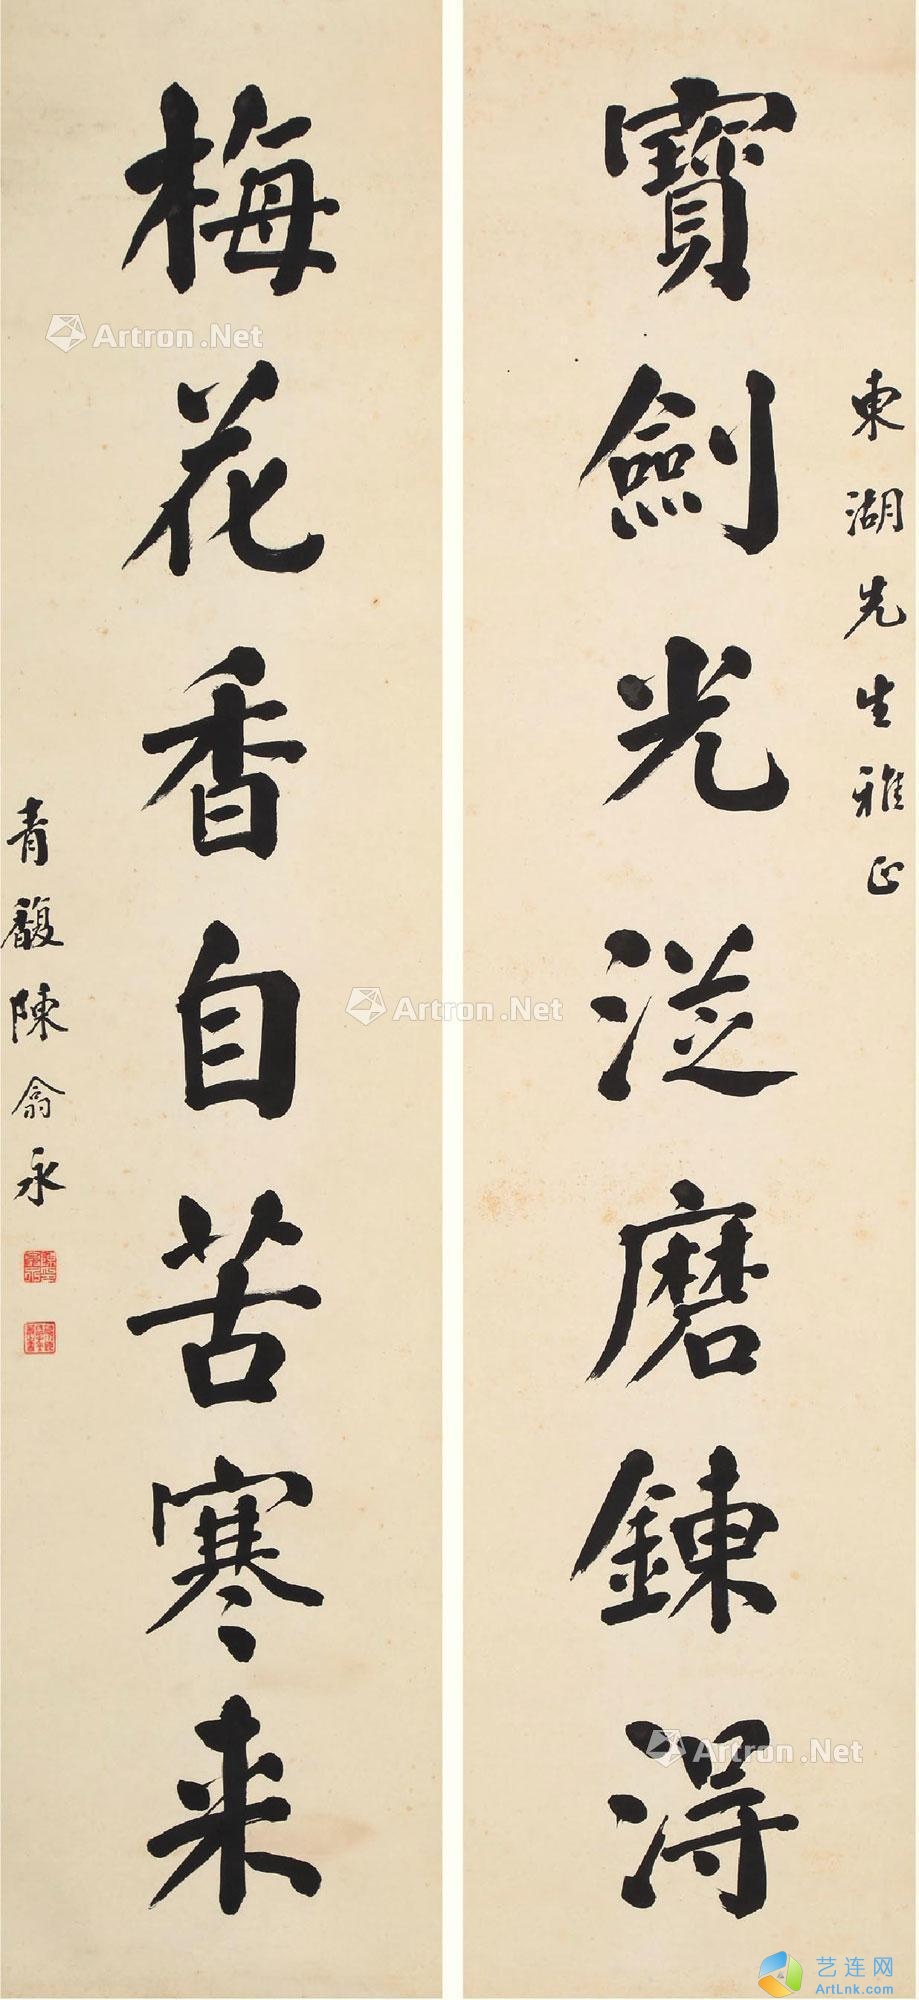 東湖先生雅正
寶劍光從磨鍊得
梅花香自苦寒来
青馥陳翕永
Artron.Net
Artron.Net
Artron.Net
艺连网
ArtLnk.com